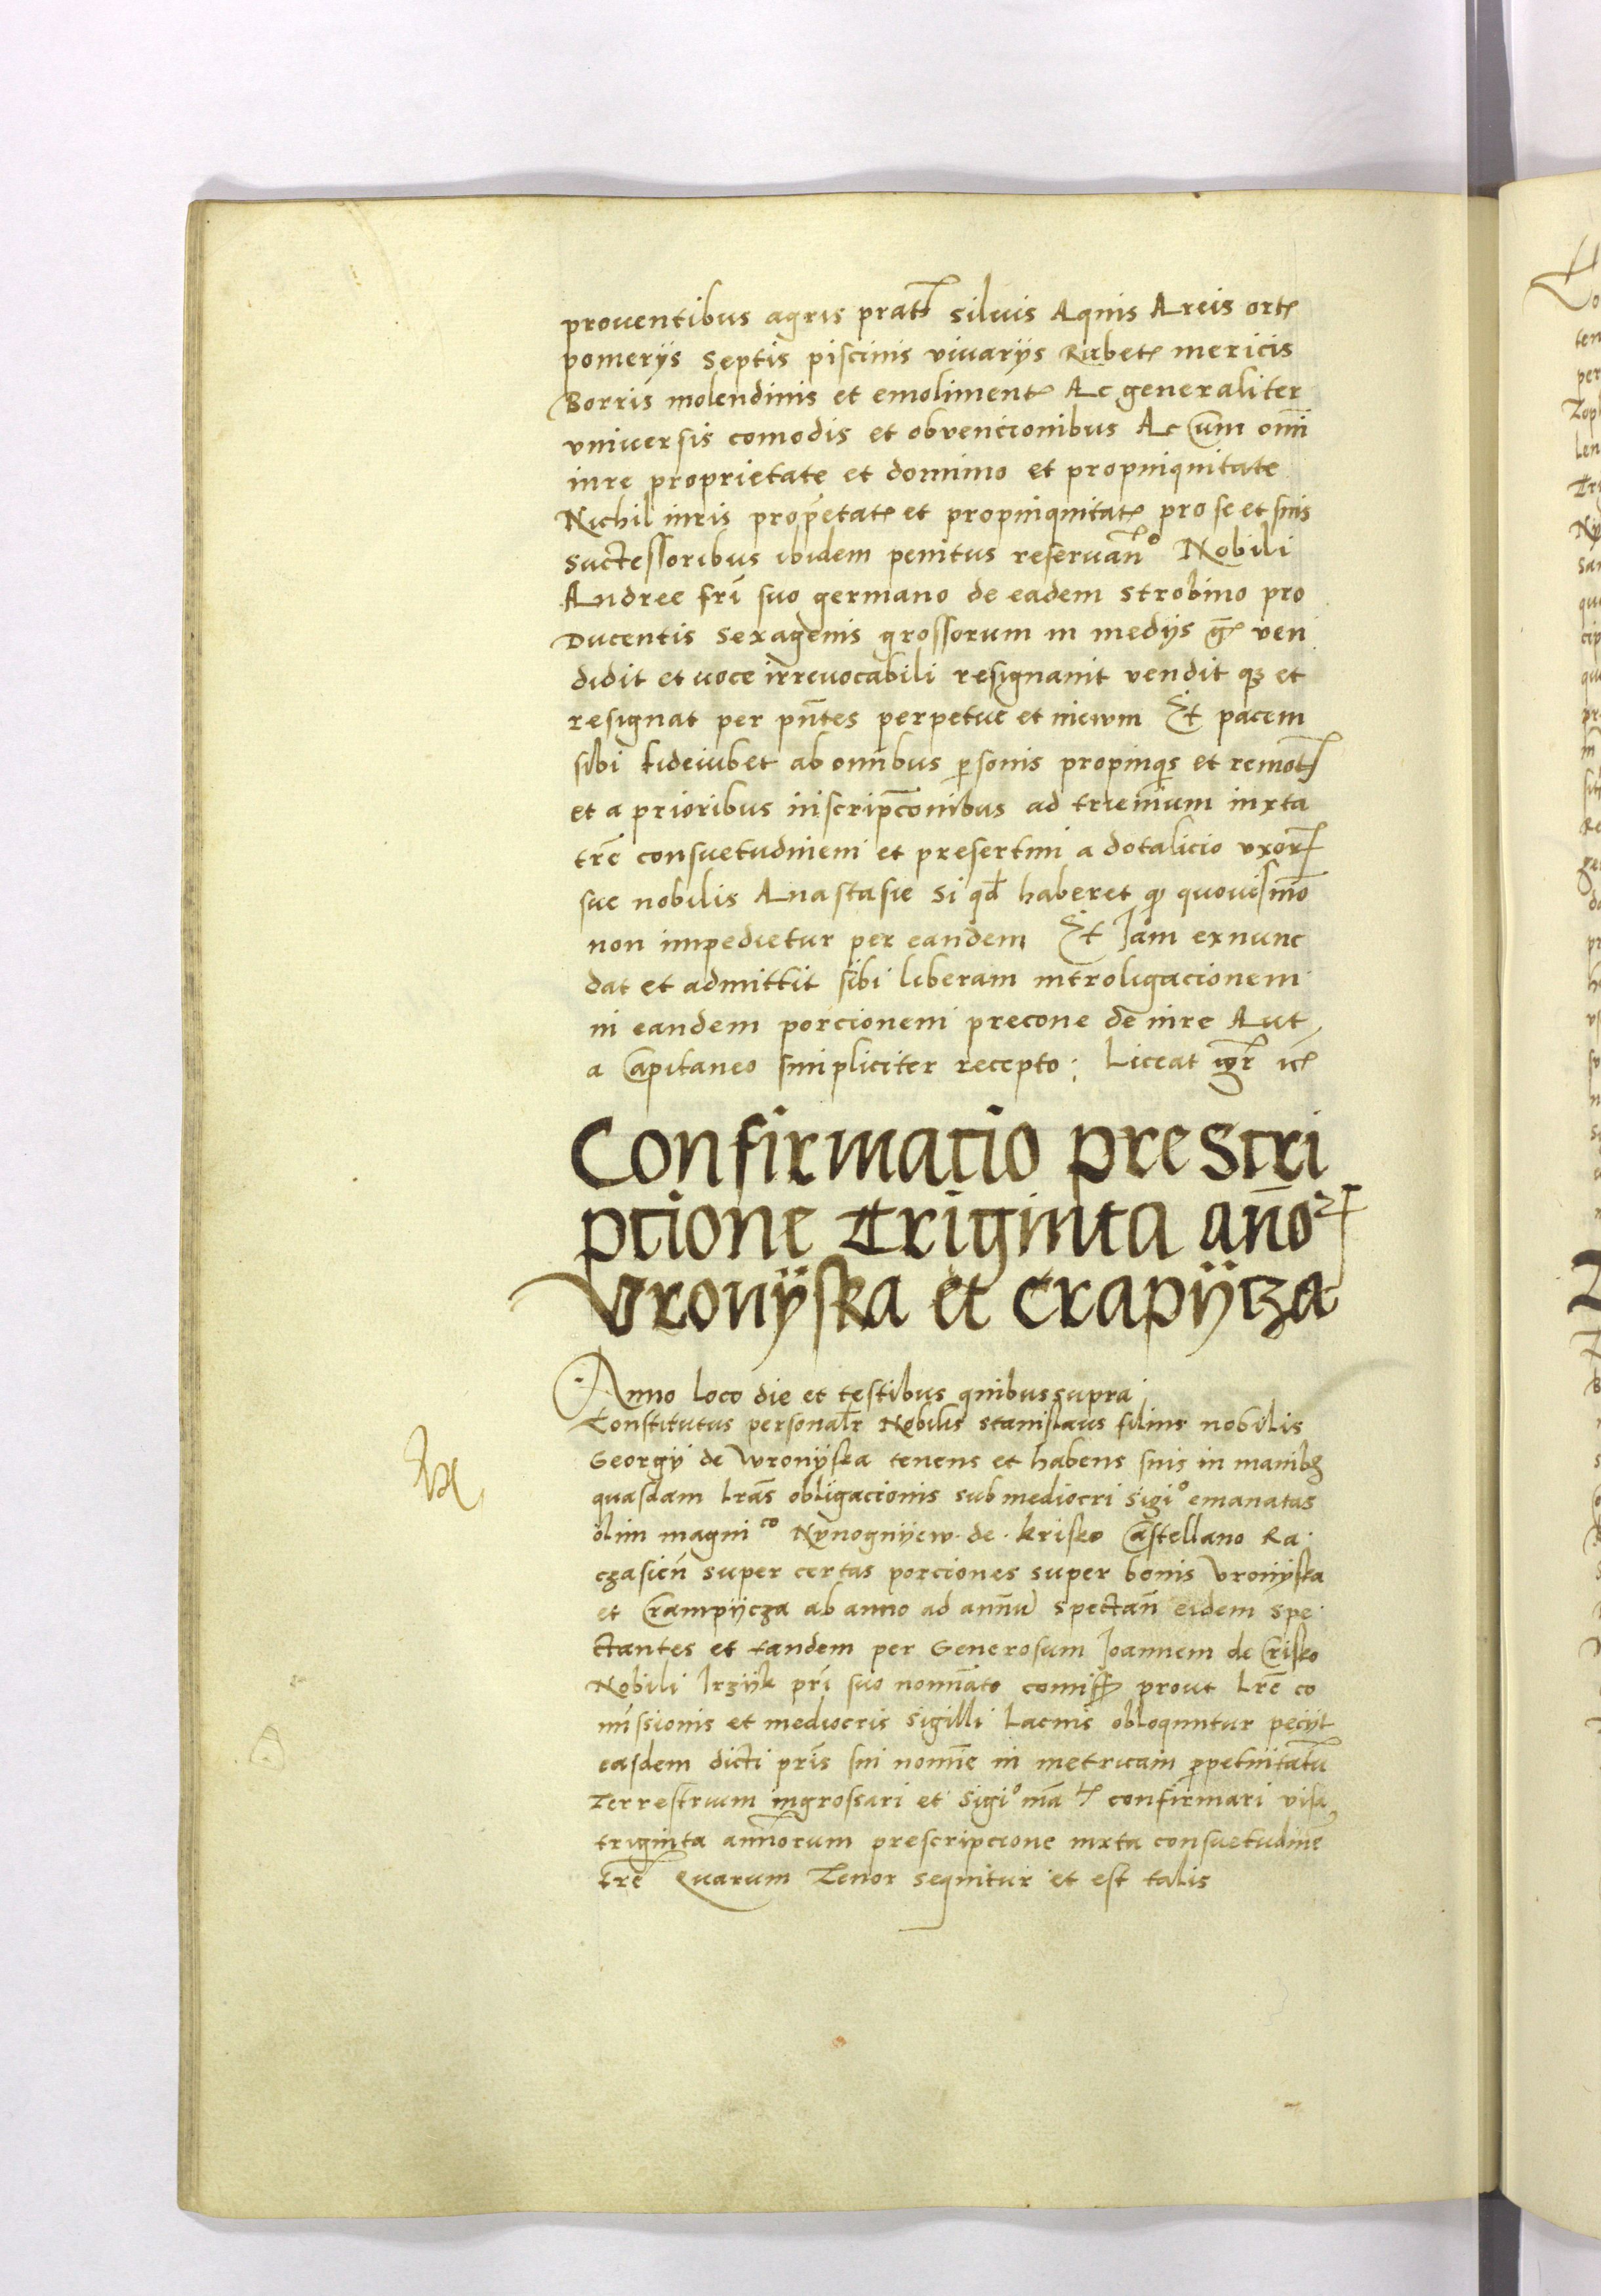 prouentibus agris prat(is) siluis Aquis Areis ort(is)
pomeriis septis piscinis viuariis Rubet(is) mericis
Borris molendinis et emoliment(is) Ac generaliter
vniuersis comodis et obvencionibus Ac Cum om̄i
iure proprietate et dominio et propinquitate
Nichil iuris prop̄etat(is) et propinquitat(is) pro se et suis
Successoribus ibidem penitus reseruan̄º Nobili
Andree fr̄i suo germano de eadem Strobino pro
Ducentis Sexagenis grossorum in mediis ḡ(r) ven
didit et voce irreuocabili resignauit vendit q(ue) et
resignat per pn̄tes perpetue et in ewm Et pacem
sibi fideiubet ab omn̄ibus p̱sonis propinq̇s et remot(is)
et a prioribus inscripc̄onibus ad trienn̄ium iuxta
tr̄e consuetudinem et presertim a dotalicio vxor(is)
sue nobilis Anastasie Si qd̄ haberet q(uod) quouismō
non impedietur per eandem Et Iam exnunc
dat et admittit sibi liberam intro ligacionem
in eandem porcionem precone de iure Aut
a Capitaneo simpliciter recepto. Liceat ig̅r ic(etc)
Confirmatio prescri
ptione Triginta an̄o(rum)
Vronÿska et Crapÿcza
Anno loco die et testibus quibus supra
Constitutus personal̄r Nobilis Stanislaus filius nobilis
Georgÿ de Wronÿska tenens et habens suis in manib(us)
quasdam lr̄as obligacionis sub mediocri sigiº emanatas
olim magni co Nynognÿew de krisko Castellano Ra
czasien̄ super certas porciones super bonis Vronÿska
et Crampÿcza ab anno ad ann̄u spectan̄ eidem spe
ctantes et tandem per Generosum Ioannem de Crisko
Nobili Irzÿk pr̄i suo nomn̄ato comiss(as) prout Lr̄e co
m̄issionis et mediocris sigilli lacius obloquntur peciit
easdem dicti pr̄is sui nomn̄e in metricam p̱petuitatu(m)
Terrestrium ingrossari et Sigiº m̄a confirmari visa
triginta annorum prescripcione iuxta consuetudinē
tr̄e Quarum Tenor sequitur et est talis